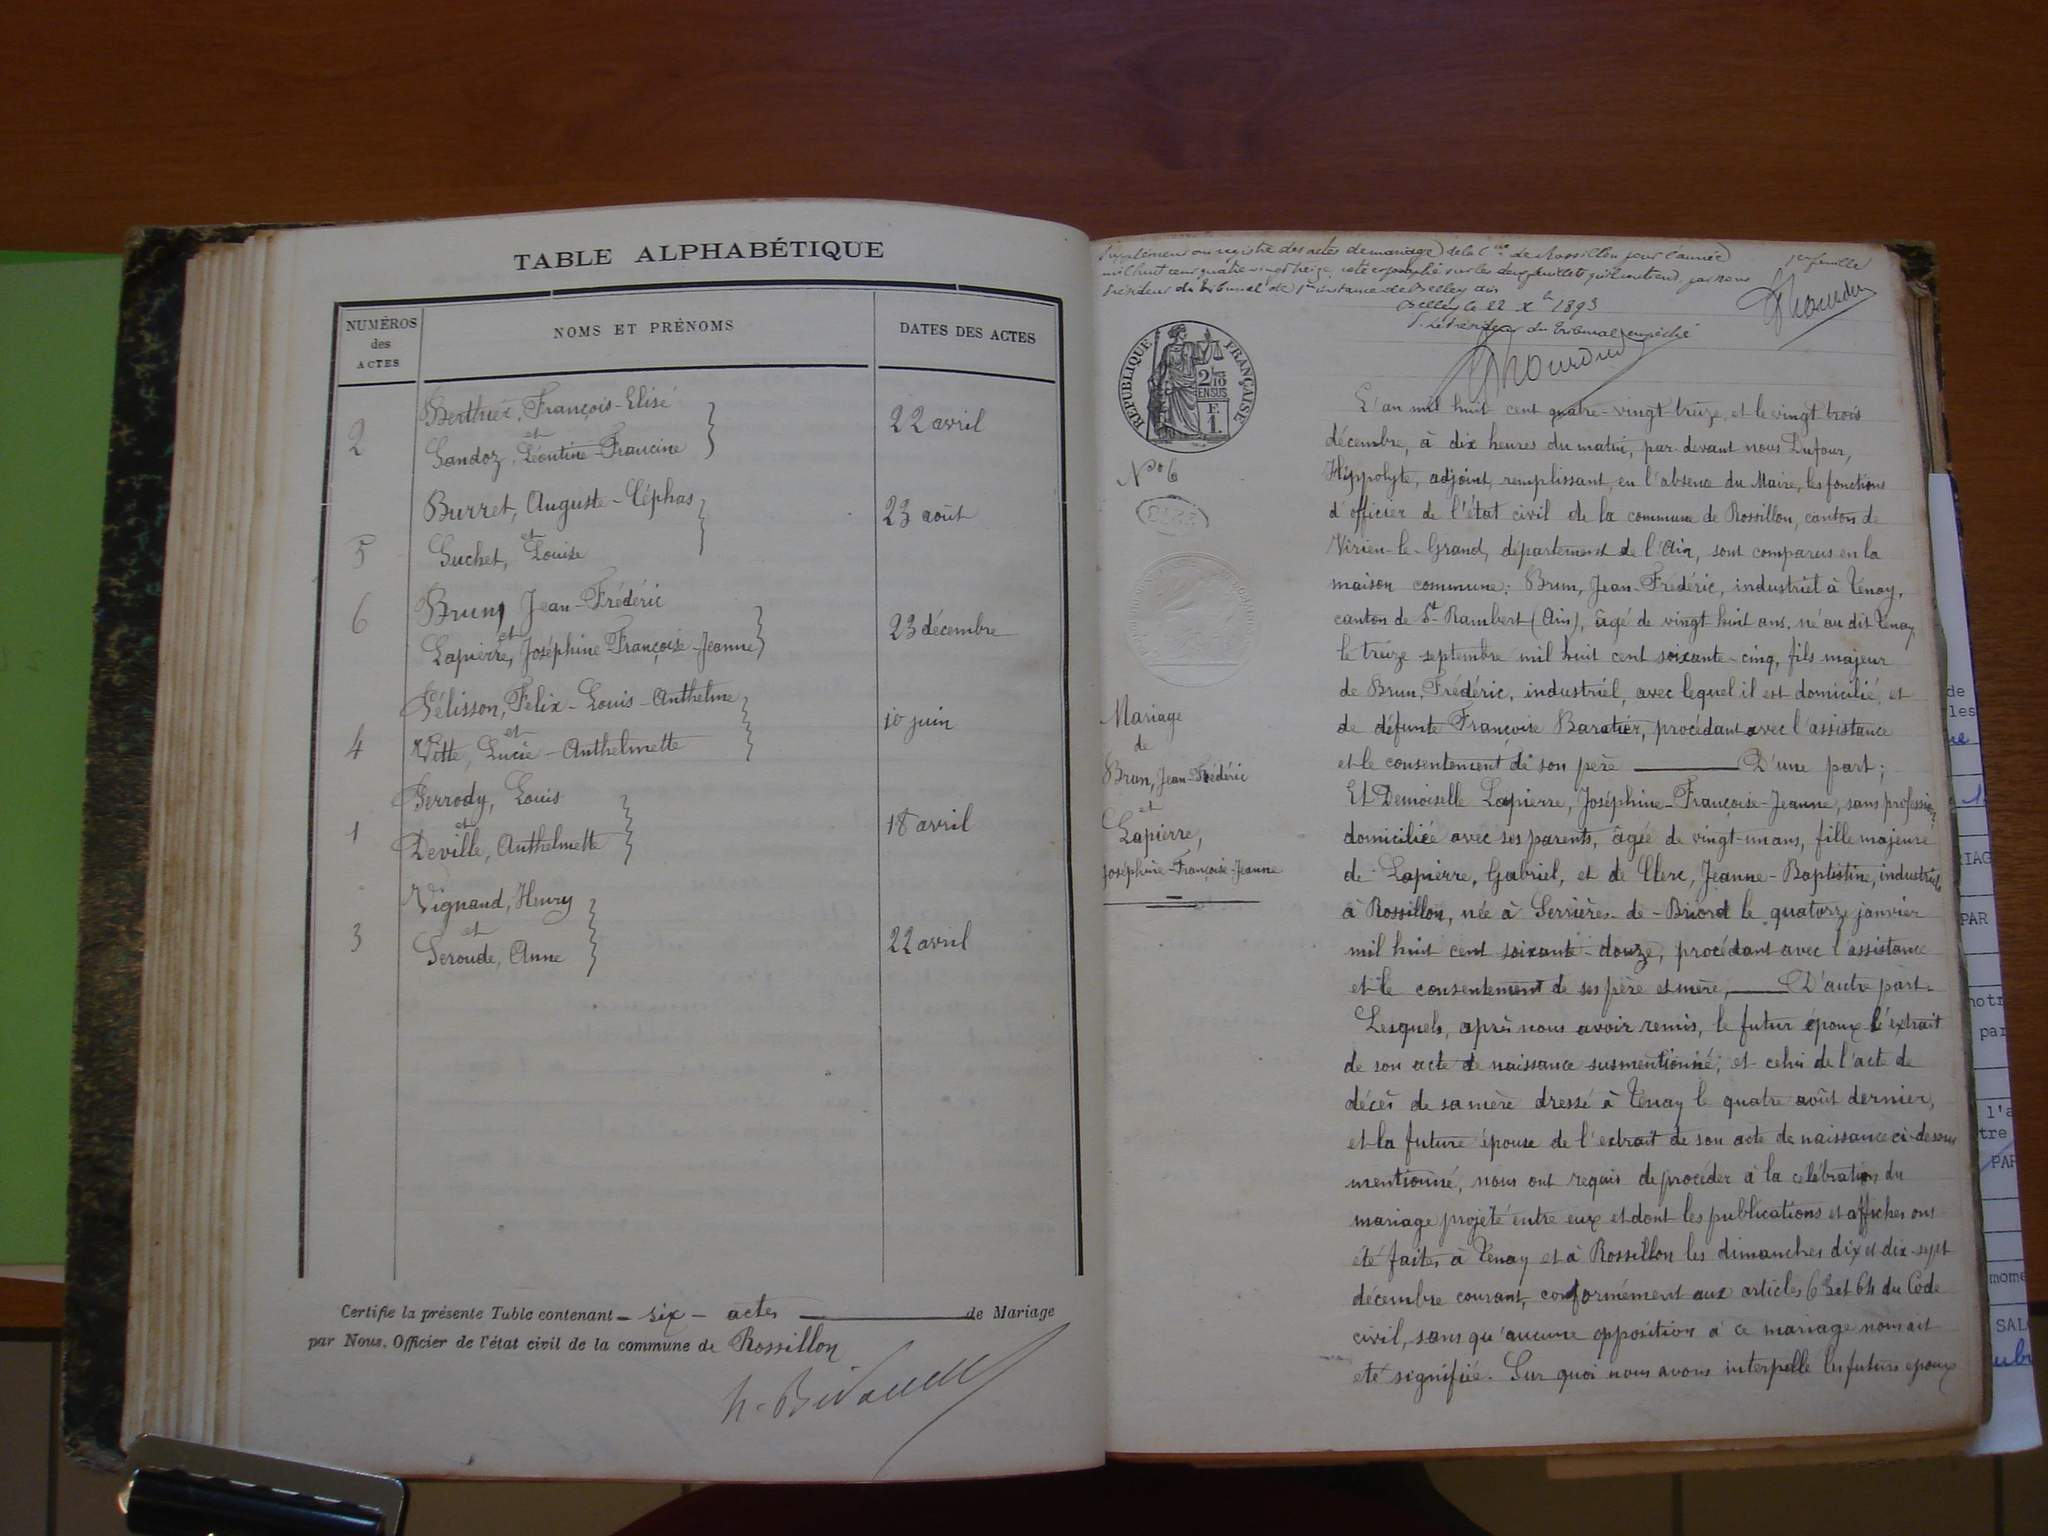 TABLE ALPHABÉTIQUE
NUMÉROS des ACTES
NOMS ET PRÉNOMS
DATES DES ACTES
Berthier, François-Elisé
2 et 22 avril
Gandoz, Léontine-Francine
Burret, Auguste-Céphas
et 23 août
5 Guchet, Louise
6 Brun, Jean-Frédéric
et 23 décembre
Lapierre, Joséphine-Françoise-Jeanne
Pélisson, Félix-Louis-Anthelme
et 10 juin
4 Vitte, Lucie-Anthelmette
Perrody, Louis
1 et 18 avril
Deville, Anthelmette
Vignand, Henry
3 et 22 avril
Seroude, Anne
Certifie la présente Table contenant - six - actes de Mariage
par Nous, Officier de l'état civil de la commune de Rossillon
Supplément au registre des actes de mariage de la Cne de Rossillon pour l'année
mil huit cent quatre vingt treize, coté et paraphé sur les deux feuillets qu'il contient, par nous
Président du Tribunal de 1re instance de Belley Ain
Belley le 22 Xbre 1893
P. Le Président du Tribunal empêché
1er feuille
RÉPUBLIQUE FRANÇAISE
2/10 EN SUS
F.
1.
No 6
Mariage
de
Brun, Jean-Frédéric
et
Lapierre,
Joséphine-Françoise-Jeanne
L'an mil huit cent quatre-vingt treize, et le vingt trois
décembre, à dix heures du matin, par devant nous Dufour,
Hippolyte, adjoint, remplissant, en l'absence du Maire, les fonctions
d'officier de l'état civil de la commune de Rossillon, canton de
Virieu-le-Grand, département de l'Ain, sont comparus en la
maison commune: Brun, Jean-Frédéric, industriel à Tenay,
canton de St-Rambert (Ain), âgé de vingt huit ans, né au dit Tenay
le treize septembre mil huit cent soixante-cinq, fils majeur
de Brun, Frédéric, industriel, avec lequel il est domicilié, et
de défunte Françoise Baratier, procédant avec l'assistance
et le consentement de son père D'une part;
Et Demoiselle Lapierre, Joséphine-Françoise-Jeanne, sans profession,
domiciliée avec ses parents, âgée de vingt-un ans, fille majeure
de Lapierre, Gabriel, et de Clerc, Jeanne-Baptistine, industriels
à Rossillon, née à Serrières-de-Briord le quatorze janvier
mil huit cent soixante-douze, procédant avec l'assistance
et le consentement de ses père et mère, D'autre part.
Lesquels, après nous avoir remis, le futur époux l'extrait
de son acte de naissance susmentionné, et celui de l'acte de
décès de sa mère dressé à Tenay le quatre août dernier,
et la future épouse de l'extrait de son acte de naissance ci-dessus
mentionné, nous ont requis de procéder à la célébration du
mariage projeté entre eux et dont les publications et affiches ont
été faites à Tenay et à Rossillon les dimanches dix et dix-sept
décembre courant, conformément aux articles 63 et 64 du Code
civil, sans qu'aucune opposition à ce mariage nous ait
été signifiée. Sur quoi nous avons interpellé les futurs époux